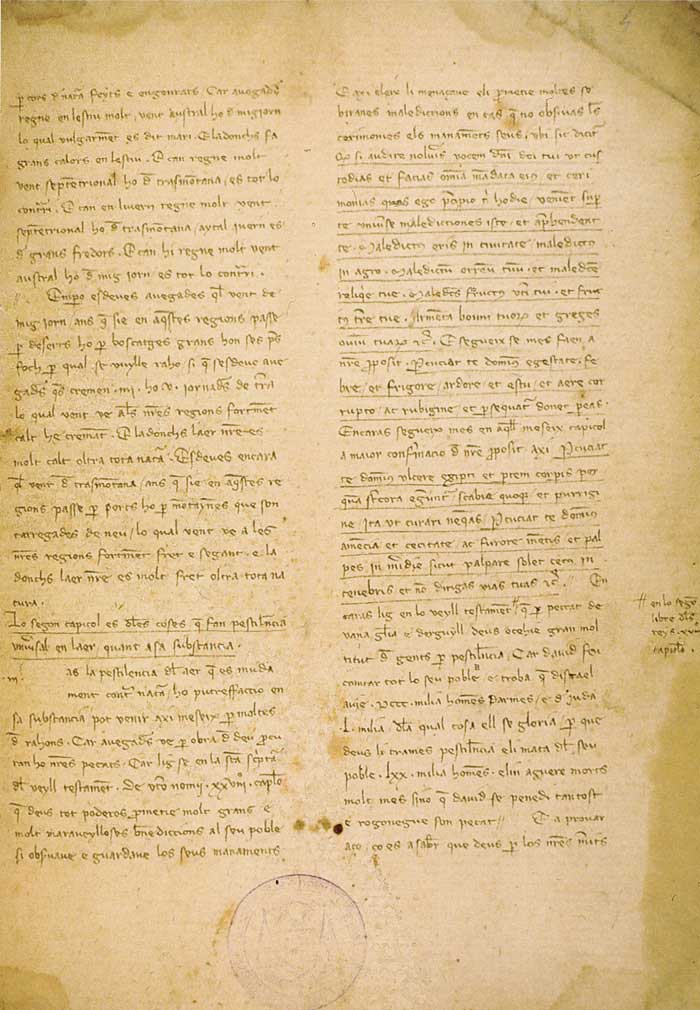 feyts e engenrats. Car auegades
regne en lestiu molt, vent austral ho d migiorn
lo qual vulgarmet es dit mari. E ladonchs fa
grans calors en lestiu. E can regne molt
vent septetrional ho d trasmotana, es tot lo
contri. E can en livern regne molt vent
septetrional ho d trasmotana, aytal ivern es
d grans fredors. E can hi regne molt vent
austral ho d mig iorn, es tot lo contri.
Empo esdeves auegades ql vent de
mig iorn, ans q sie en aqstes regions, passe
p deserts ho p boscatges grans hon ses pes
foch, p qual se vuylle raho, si q sesdeve ave
gads qs cremen. iiii. ho v. iornads de tra
lo qual vent ve als nres regions fortmet
calt he cremat. E ladonchs laer nre es
molt calt oltra tota naca. Esdeves encara
ql vent d trasmotana, ans q sie en aqstes re
gions passe p ports ho p motaynes que son
carregades de neu, lo qual vent ve a les
nres regions fortmet fret e segant. e la
donchs laer nre es molt fret oltra tota na
tura.
Lo segon capitol es dles coses q fan pestilencia
universal en laer, quant a sa substancia.
as la pestilencia dl aer q es muda
ment contr naca, ho putrefaccio en
sa substancia pot venir axi meseix p moltes
d rahons. Car avegads ve p obra d deu pcu
ran ho nres pecats. Car lig se en la sta scptra
dl veyll testamet. De utro nomii. xxviii. caplo
q deus tot poderos pmetie molt grans e
molt maraveylloses bnediccions al seu poble
si obsvave e guardave los seus manaments
E axi eleix li menaçave eli pmetie moltes so
biranes malediccions en cas q no obsvas ls
cerimonies els manamets seus, ubi sic dicit
Qd si audire noluis vocem dni dei tui ut cus
todias et facias omia madata eius et ceri
monias quas ego pcipio ti hodie, venient sup
te universe malediciones iste, et aphendent
te. Maledictus eris in civitate maledictus
in agro. Maledictum orreum tuum, et maledcte
reliqie tue. Maledcts fructus vtri tui, et fruc
tus tre tue. Armeta boum tuorum et greges
ovium tuarum &c. E segueix se mes faen a
nre pposit. Pcuciat te dominus egestate, fe
bre, et frigore, ardore et estu, et aere cor
rupto, ac rubigine et psequatur donec peas.
Encaras segueix mes en aqll meseix capitol
a maior confrmacio d nre pposit axi. Pcuciat
te dominus ulcere egipti et ptem corpis per
qua stcora egunt, scabie quoque et purrigi
ne, ita ut curari neqas. Pcuciat te dominus
amecia et cecitate, ac furore metis et pal
pes in midie sicut palpare solet cecus in
tenebris et no dirigas vias tuas &c. En
caras lig en lo veyll testamet # q p peccat de
vana glia e derguyll deus ocehie gran mol
titut d gents p pestilencia, Car david feu
comtar tot lo seu poble e troba q disrael
avie. Dccc. milia homens darmes, e d iuda
L. milia. dla qual cosa ell se gloria, p que
deus li trames pestilencia eli mata dl seu
poble. Lxx. milia homes. elin aguere morts
molt mes sino q david se penedi tantost
e rogonegue son pecat // E a provar
aço, ço es a sabr que deus p los nres merits
# en lo sego
libre dls
reys. xxiiii
capitolo.